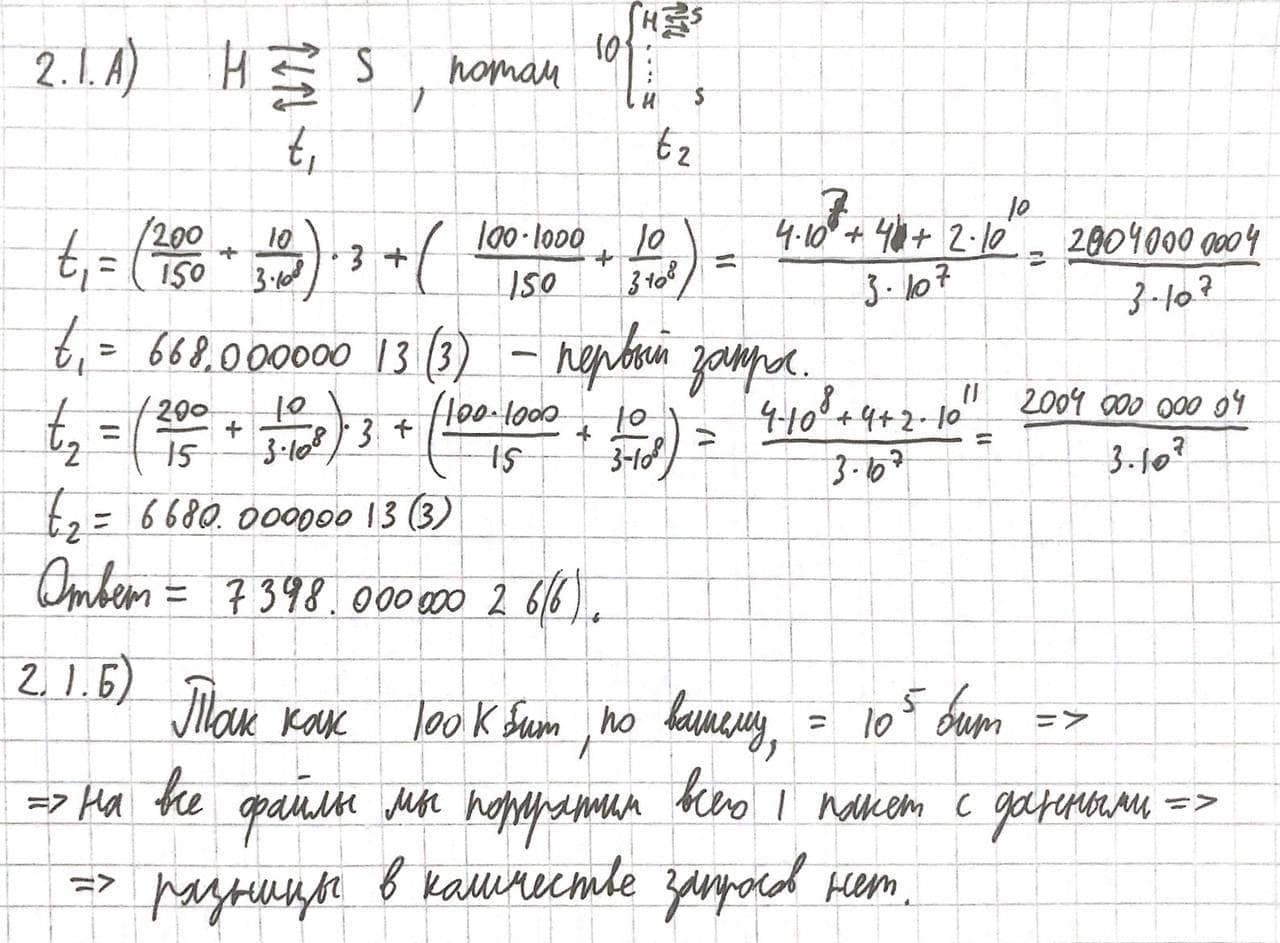 2.1.А) H ⇄⇄ S, потом 10 { H ⇄⇄ S ⋮ H S
t₁ t₂
t₁ = (200/150 + 10/(3·10⁸))·3 + (100·1000/150 + 10/(3·10⁸)) = (4·10⁷ + 4 + 2·10¹⁰)/(3·10⁷) = 20040000004/(3·10⁷)
t₁ = 668.000000 13(3) – первый запрос.
t₂ = (200/15 + 10/(3·10⁸))·3 + (100·1000/15 + 10/(3·10⁸)) = (4·10⁸+4+2·10¹¹)/(3·10⁷) = 2004 000 000 04/(3·10⁷)
t₂ = 6680.000000 13(3)
Ответ = 7348.000000 2 6(6).
2.1.Б)
Так как 100 Кбит, по вашему, = 10⁵ бит =>
=> на все файлы мы потратим всего 1 пакет с данными =>
=> разницы в количестве запросов нет.